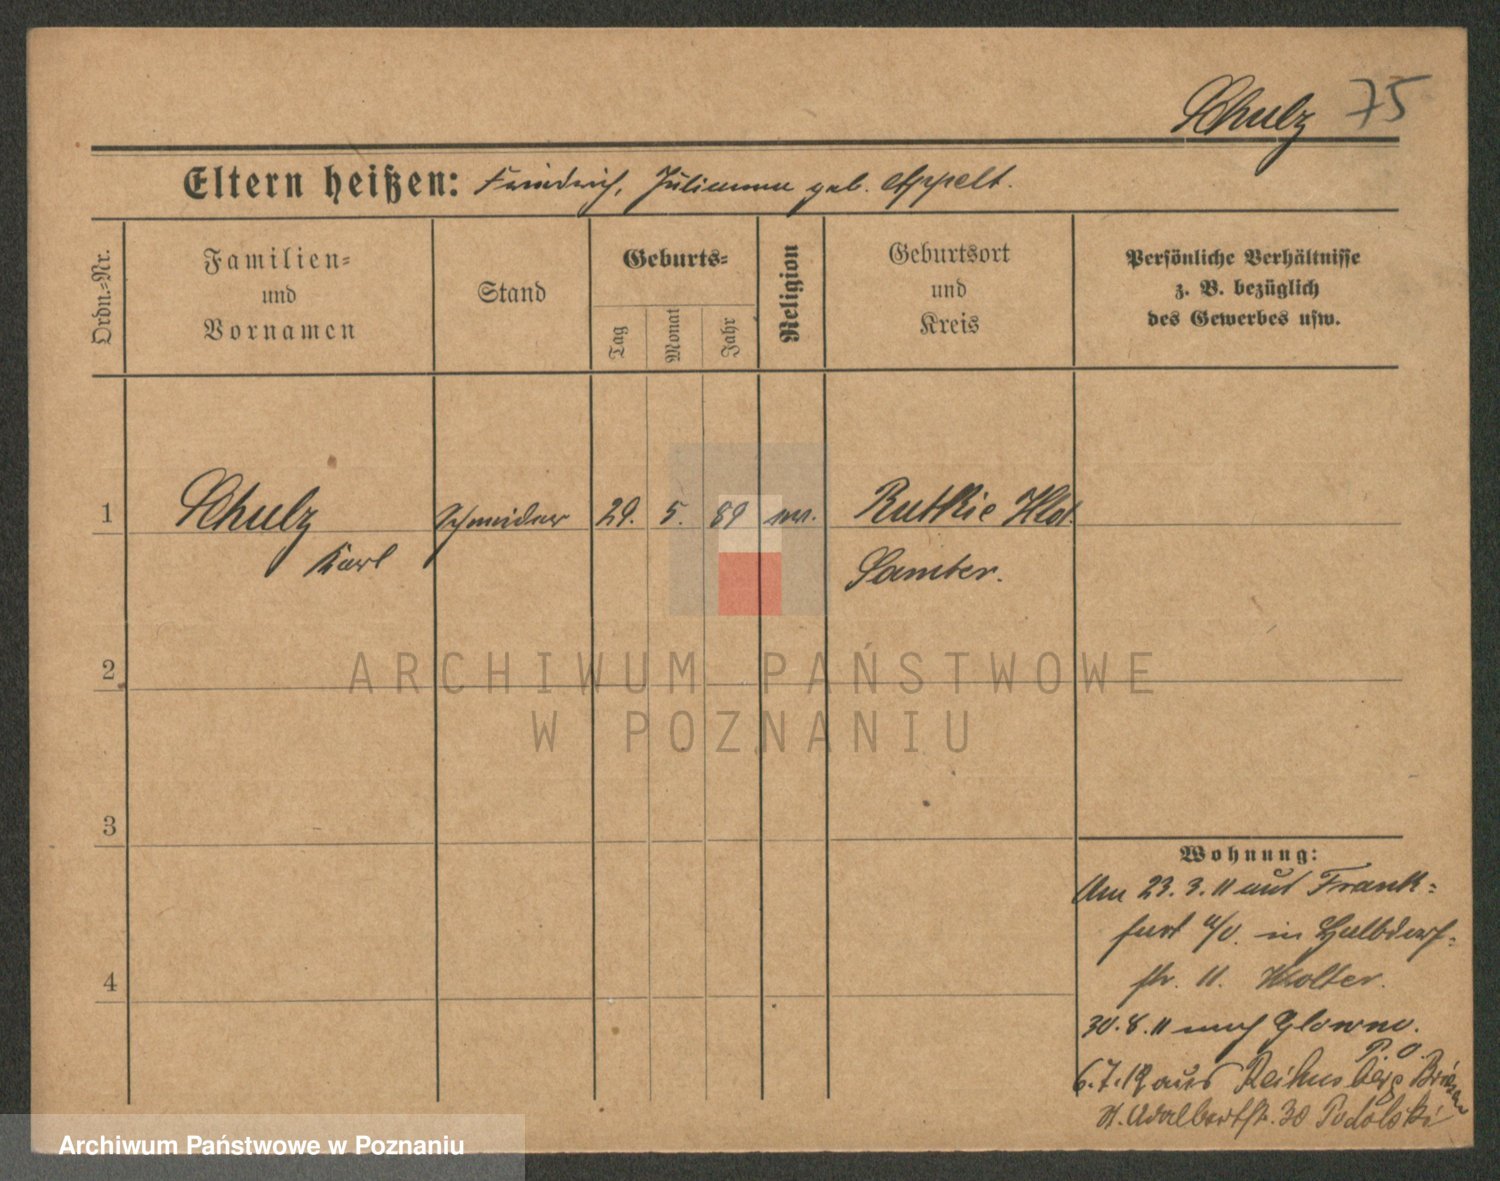 Schulz 75
Eltern heißen: Friedrich, Julianna geb. Appelt.
Ordn.-Nr.
Familien-
und
Vornamen
Stand
Geburts-
Tag
Monat
Jahr
Religion
Geburtsort
und
Kreis
Persönliche Verhältnisse
z. B. bezüglich
des Gewerbes usw.
1 Schulz Schneider 29. 5. 89
Karl
Samter.
2
ARCHIWUM PAŃSTWOWE
W POZNANIU
3
4
Wohnung:
Am 23. 3. 11 aus Frank-
furt a/O. in Halbdorf-
str. 11. Wolter.
30. 8. 11 nach Glowno.
P. O.
6. 7. aus
St. Adalbertstr. 30 Podolski
Archiwum Państwowe w Poznaniu